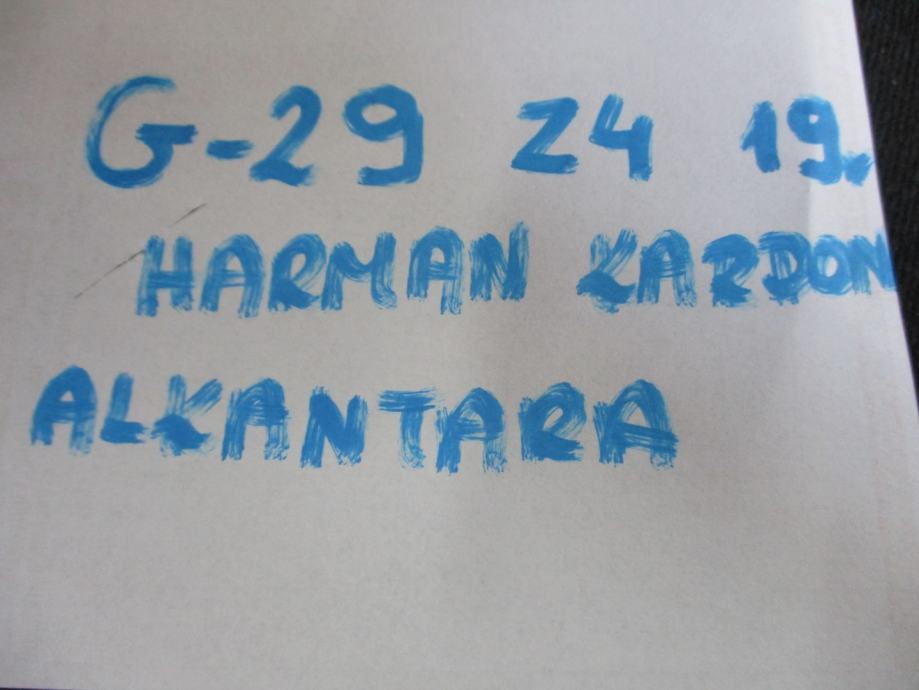 G-29 Z4 19.
HARMAN KARDON
ALKANTARA